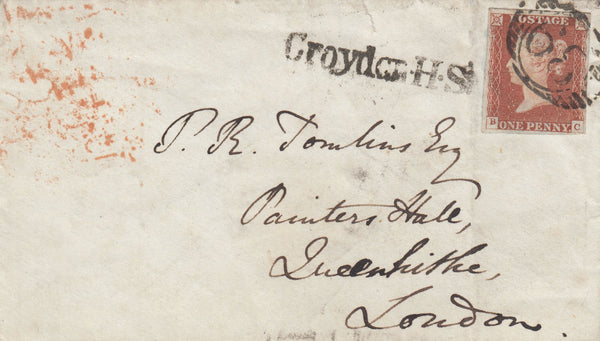 Croydon·H·S
POSTAGE
B ONE PENNY C
P. R. Tomlins Esq
Painters Hall,
Queenhithe,
London.